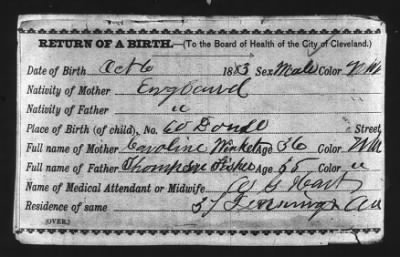 RETURN OF A BIRTH.—(To the Board of Health of the City of Cleveland.)
Date of Birth Oct 6 1883 Sex Male Color
Nativity of Mother England
Nativity of Father "
Place of Birth (of child), No. 60 Street
Full name of Mother Caroline Age 36 Color
Full name of Father Thompson Fisher Age Color "
Name of Medical Attendant or Midwife G Hart
Residence of same 37 Jennings Av
(OVER.)